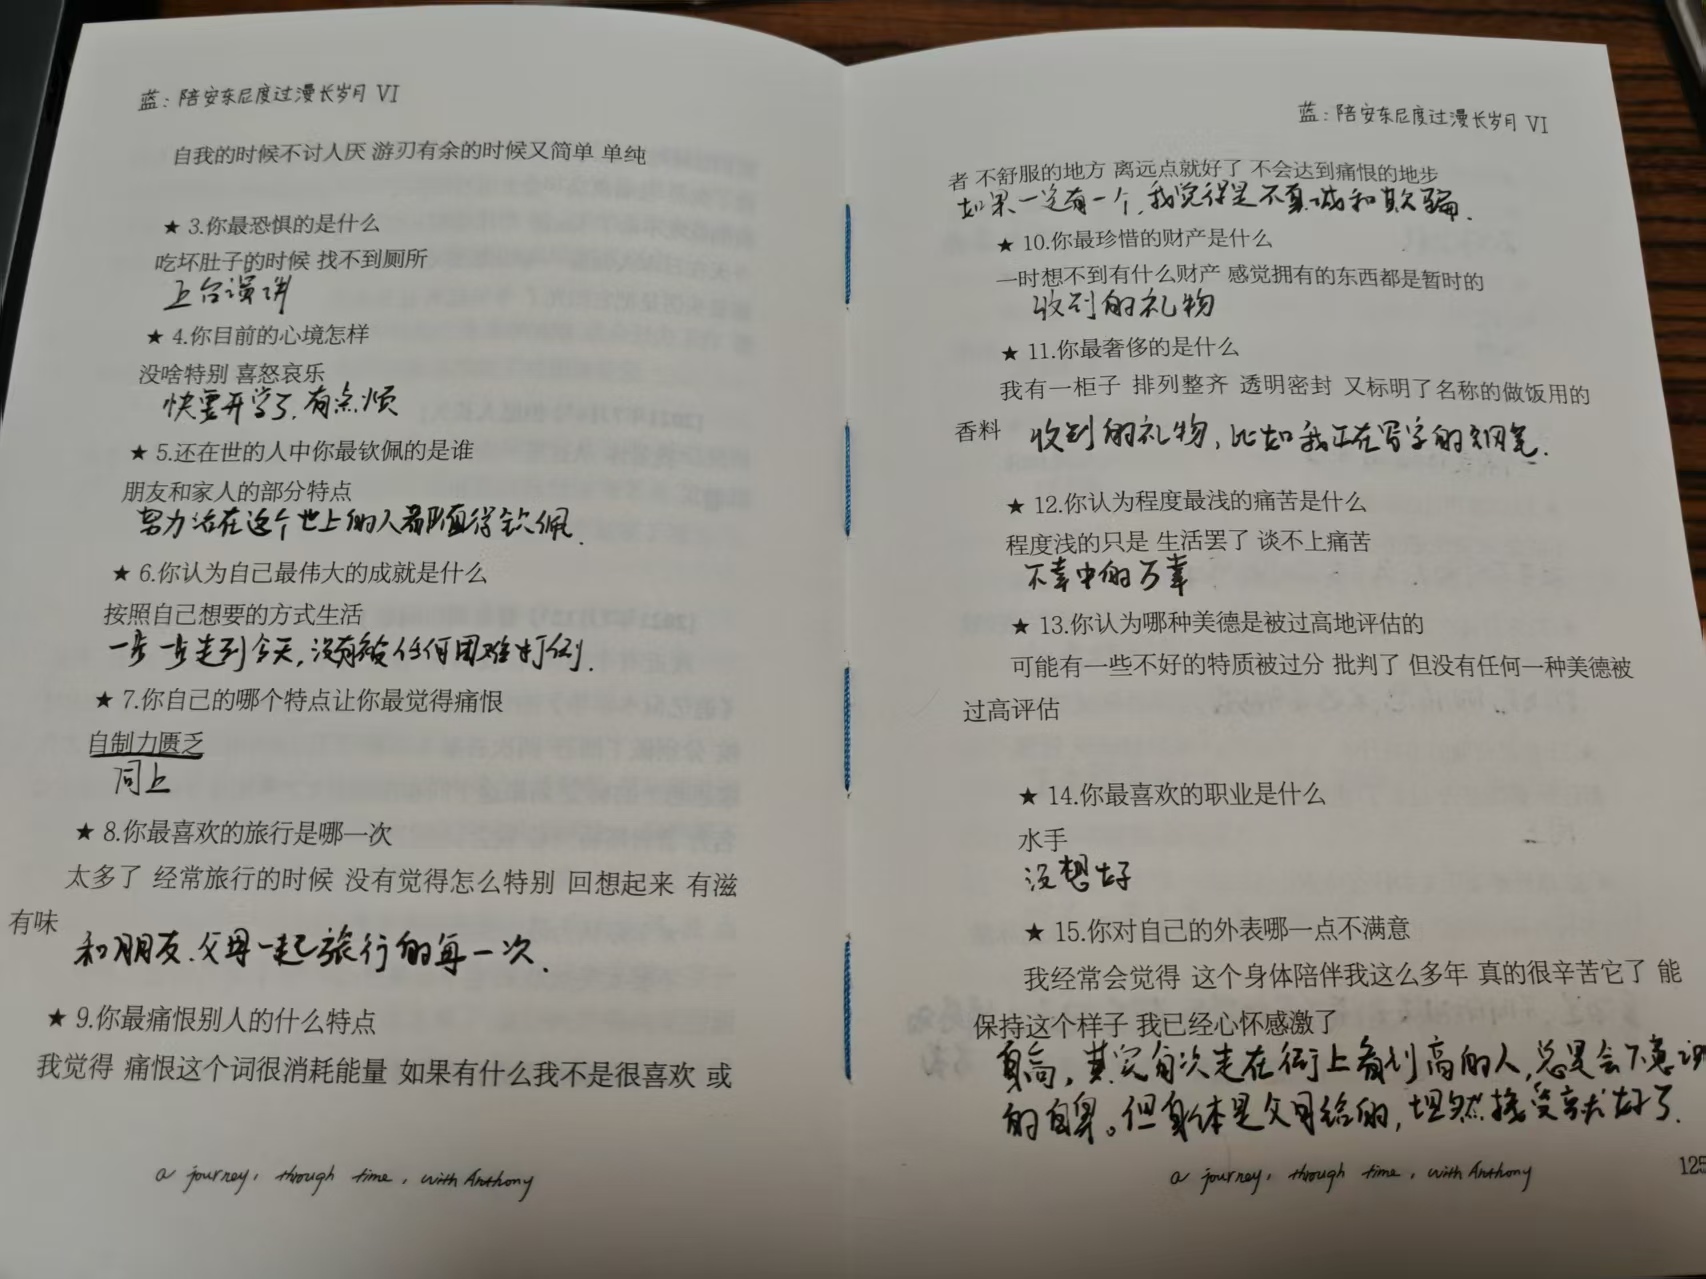 蓝：陪安东尼度过漫长岁月 VI
自我的时候不讨人厌 游刃有余的时候又简单 单纯
★ 3.你最恐惧的是什么
吃坏肚子的时候 找不到厕所
上台演讲
★ 4.你目前的心境怎样
没啥特别 喜怒哀乐
快要开学了,有点烦
★ 5.还在世的人中你最钦佩的是谁
朋友和家人的部分特点
努力活在这个世上的人都值得钦佩.
★ 6.你认为自己最伟大的成就是什么
按照自己想要的方式生活
一步一步走到今天,没有被任何困难打倒.
★ 7.你自己的哪个特点让你最觉得痛恨
自制力匮乏
同上
★ 8.你最喜欢的旅行是哪一次
太多了 经常旅行的时候 没有觉得怎么特别 回想起来 有滋
有味
和朋友、父母一起旅行的每一次.
★ 9.你最痛恨别人的什么特点
我觉得 痛恨这个词很消耗能量 如果有什么我不是很喜欢 或
a journey, through time, with Anthony
蓝：陪安东尼度过漫长岁月 VI
者 不舒服的地方 离远点就好了 不会达到痛恨的地步
如果一定有一个,我觉得是不真诚和欺骗.
★ 10.你最珍惜的财产是什么
一时想不到有什么财产 感觉拥有的东西都是暂时的
收到的礼物
★ 11.你最奢侈的是什么
我有一柜子 排列整齐 透明密封 又标明了名称的做饭用的
香料
收到的礼物,比如我正在写字的钢笔.
★ 12.你认为程度最浅的痛苦是什么
程度浅的只是 生活罢了 谈不上痛苦
不幸中的万幸
★ 13.你认为哪种美德是被过高地评估的
可能有一些不好的特质被过分 批判了 但没有任何一种美德被
过高评估
★ 14.你最喜欢的职业是什么
水手
没想好
★ 15.你对自己的外表哪一点不满意
我经常会觉得 这个身体陪伴我这么多年 真的很辛苦它了 能
保持这个样子 我已经心怀感激了
身高,其实每次走在街上看到高的人,总是会下意识
的自卑。但身体是父母给的,坦然接受就好了.
a journey, through time, with Anthony
125